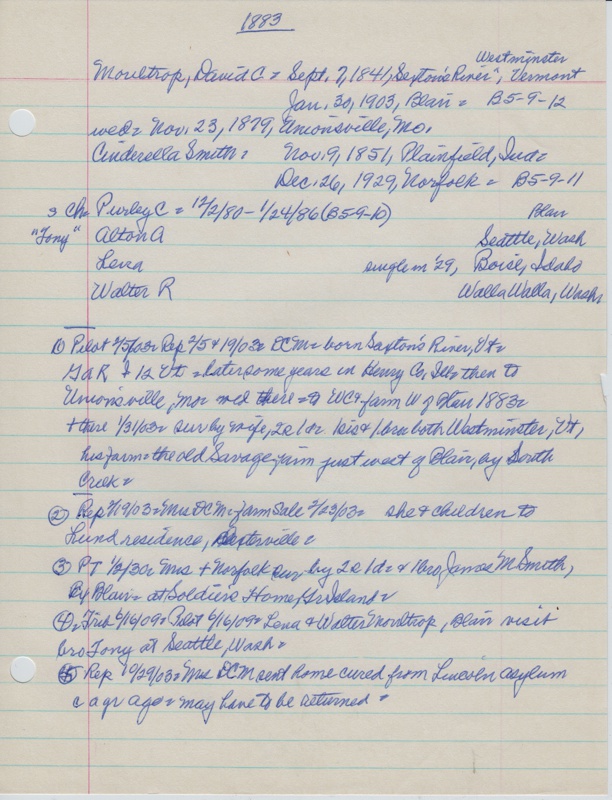 1883
Westminster
Moultrop, David C = Sept. 7, 1841, Sexton's River", Vermont
Jan. 30, 1903, Blair = B5-9-12
wed = Nov. 23, 1879, Unionsville, Mo.
Cinderella Smith = Nov. 9, 1851, Plainfield, Ind =
Dec. 26, 1929, Norfolk = B5-9-11
3 Ch = Purley C = 12/2/80 - 1/24/86 (B5-9-10) Blair
"Tony" Alton A Seattle, Wash
Lena single in '29, Boise, Idaho
Walter R Walla Walla, Wash
1) Pilot 2/5/03 = Rep 2/5 & 19/03 = DCM = born Saxton's River, Vt =
GAR 12 Vt = later some years in Henry Co, Ills = then to
Unionsville, Mo = wed there = to WC & farm W of Blair 1883 =
+ there 1/31/03 = sur by wife, 2s 1d = 1sis & 1bro both Westminster, Vt,
his farm = the old Savage farm just west of Blair, by South
Creek =
2 Rep 2/19/03 = Mrs DCM = farm sale 2/23/03 = she & children to
Lund residence,
3 PT 1/2/30 = Mrs + Norfolk sur by 2s 1d = & 1bro James M Smith,
Ex Blair = at Soldiers Home, Gr Island =
4 = Trib 6/16/09 = Pilot 6/16/09 = Lena & Walter Moultrop, Blair visit
bro Tony at Seattle, Wash =
5 Rep 10/29/03 = Mrs DCM sent home cured from Lincoln asylum
c a yr ago = may have to be returned =